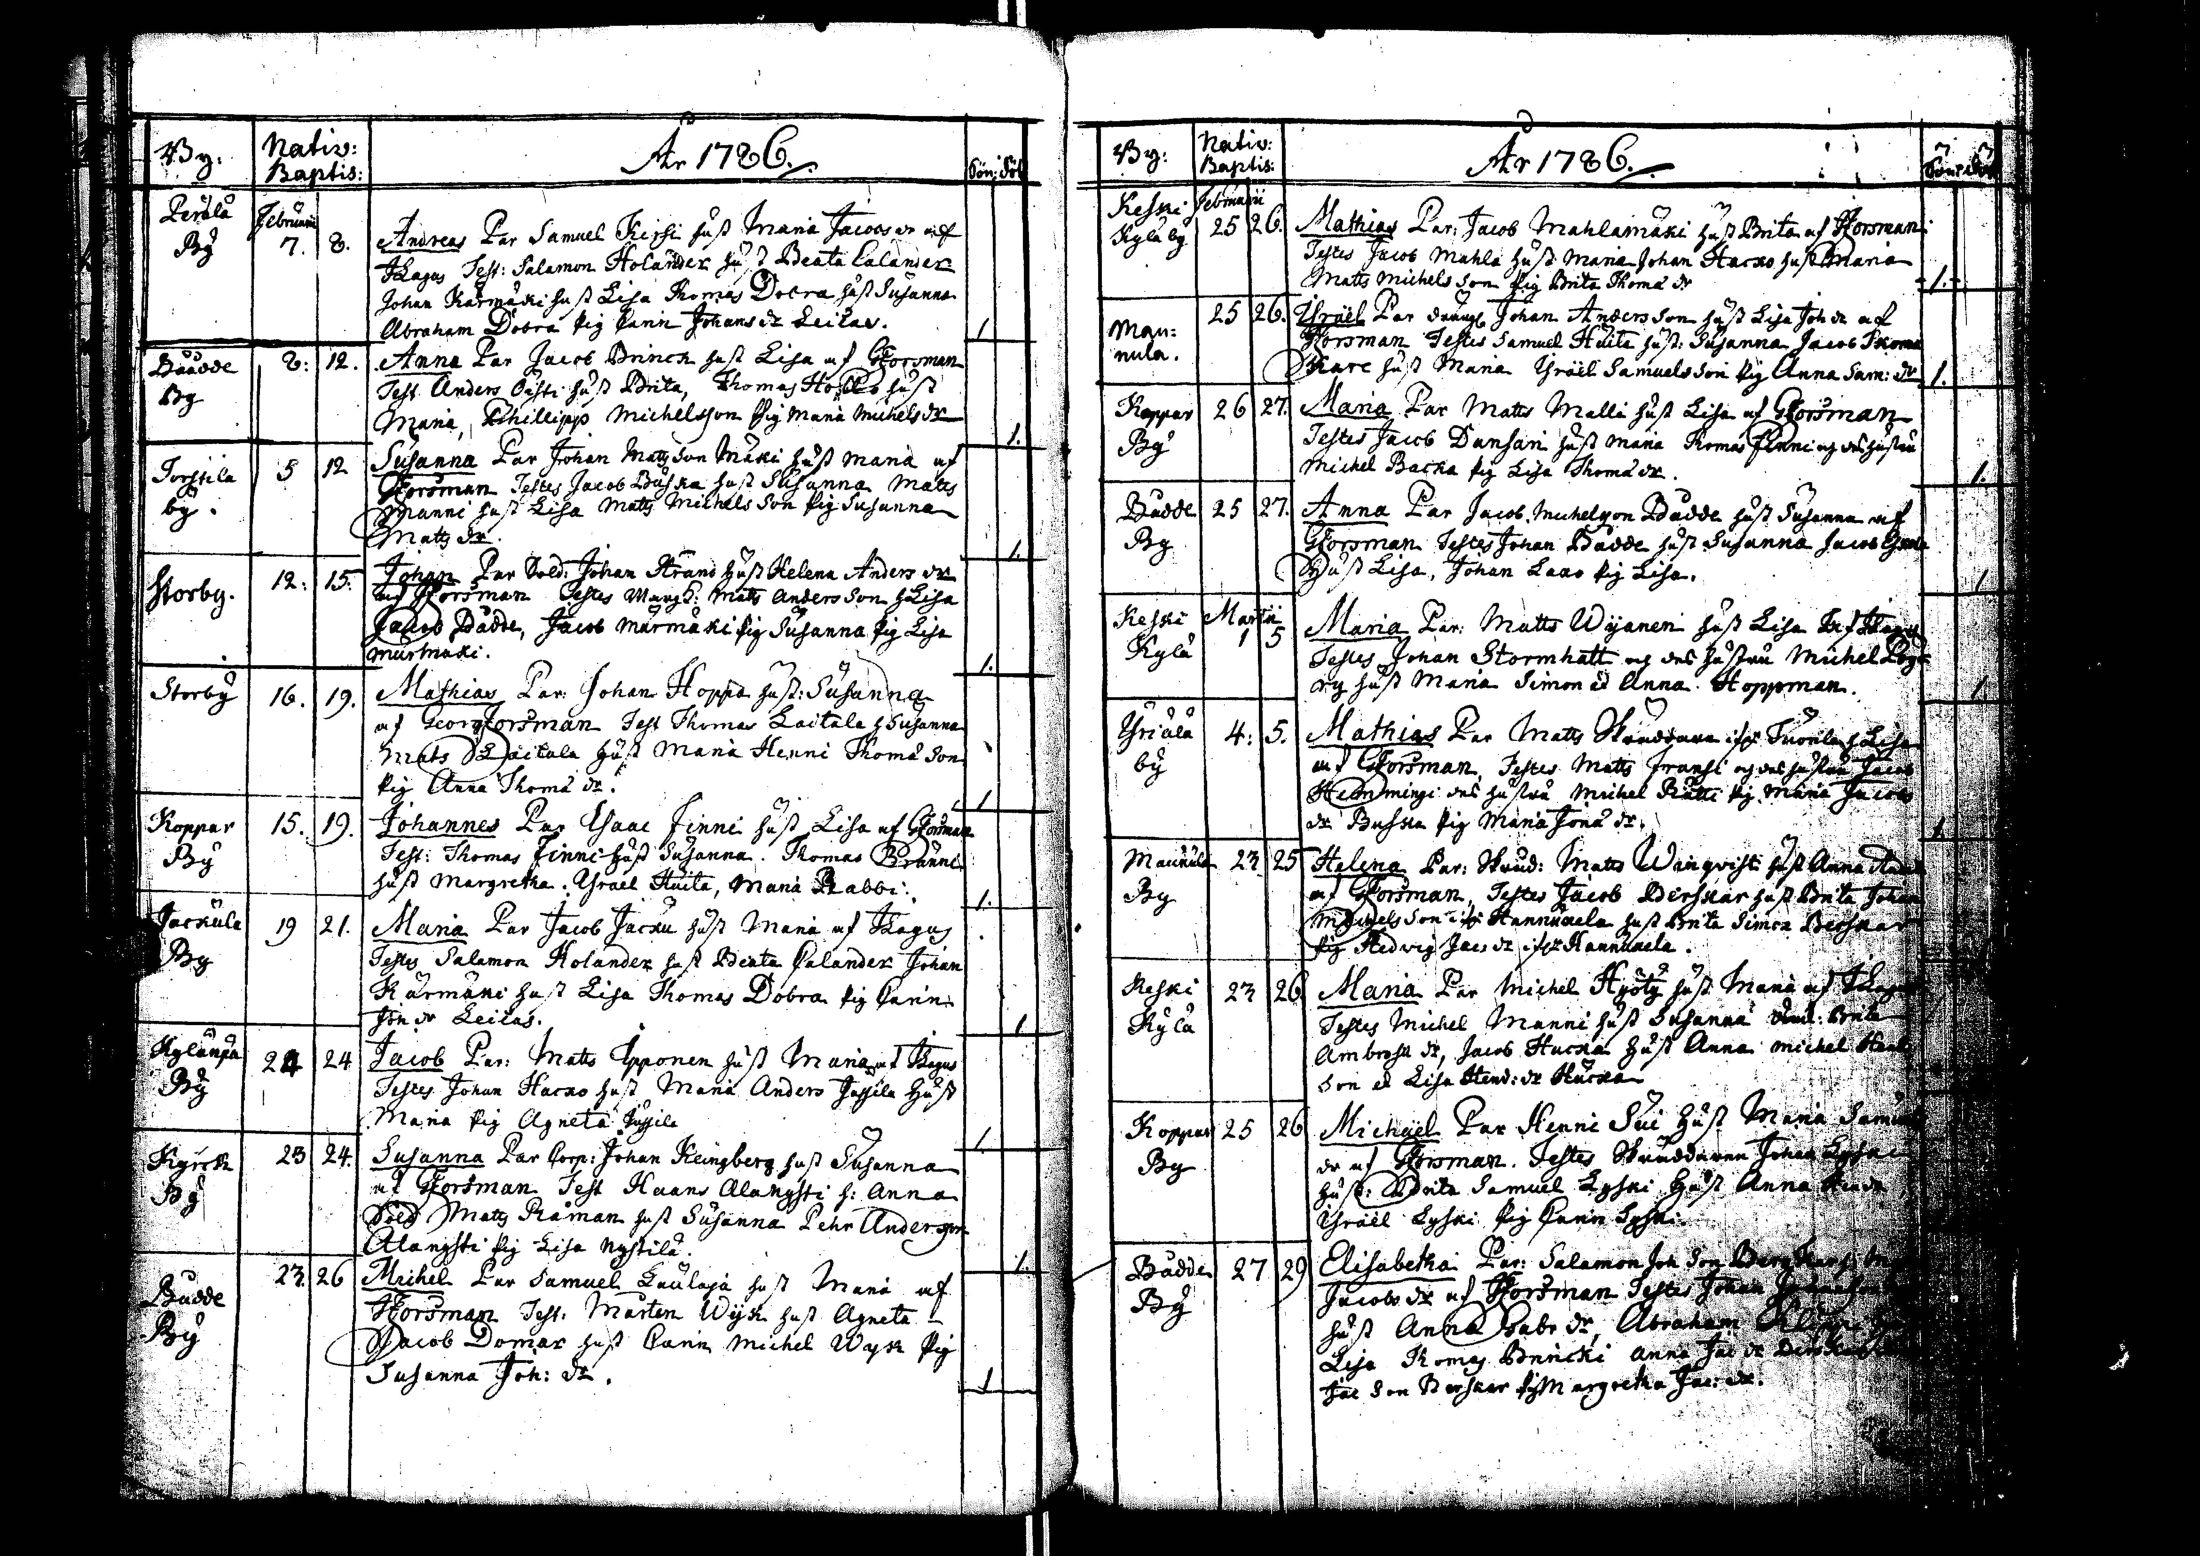 By:
Nativ:
Baptis:
År 1786.
Sön: Döt
Perälä
By
Februarii
7. 8.
Andreas Par Samuel Kirsi hust Maria Jacobs dr af
Lagus Test: Salamon Holander hust Beata Calander
Johan Kärmäki hust Lisa Thomas Dobra hust Susanna
Abraham Dobra pig Carin Johans dr Leilas.
1
Båådde
By
8: 12.
Anna Par Jacob Brinck hust Lisa af Forsman
Test Anders hust Brita, Thomas hust
Maria, Phillipp Michellsson pig Maria Michels dr
1.
Torstila
by.
5 12
Susanna Par Johan Matsson Mäki hust Maria af
Forsman Testes Jacob Buska hust Susanna Matts
Manni hust Lisa Matts Michels Son pig Susanna
Matts dr.
1.
Storby.
12: 15.
Johan Par Sold: Johan Strand hust Helena Anders dr
af Forsman Testes Matts Anders Son h Lisa
Jacob Bådde, Jacob Marmaki pig Susanna pig Lisa
Murmaki.
1.
Storby
16. 19.
Mathias Par: Johan Hoppa hust: Susanna
af Georg Forsman Test Thomas Laitala h Susanna
Mats Laitala hust Maria Henni Thoma Son
pig Anna Thoma dr.
1
Koppar
By
15. 19.
Johannes Par Isaac Finni hust Lisa af Forsman
Test: Thomas Finni hust Susanna. Thomas Brunni
hust Margretha. Israel Huita, Maria Rabbi.
1.
Jackula
By
19 21.
Maria Par Jacob Jacku hust Maria af Lagus
Testes Salamon Holander hust Beata Calander Johan
Kärmäki hust Lisa Thomas Dobra pig Carin
Joh dr Leilas.
1
Kylänpä
By
24 24
Jacob Par: Matts Ipponen hust Maria af Lagus
Testes Johan Hacko hust Maria Anders Jussila hust
Maria pig Agneta Jussila
1.
Kyrck
By
23 24.
Susanna Par Corp: Johan Keingberg hust Susanna
af Forsman Test Haans Alangsti h: Anna
Sold Matts Råman hust Susanna Pehr Andersson
Alangsti pig Lisa Nystila.
1.
Bådde
By
23. 26
Michel Par Samuel Laulaja hust Maria af
Forsman Test: Mårten Wijk hust Agneta
Jacob Domar hust Carin Michel Wyk pig
Susanna Joh: dr.
1
By:
Nativ:
Baptis:
År 1786.
Keski
Kylä by
Februarii
25 26.
Mathias Par: Jacob Mahlamäki hust Brita af Forsman
Testes Jacob Mahla hust Maria Johan Hacko hust Maria
Matts Michels Son pig Brita Thoma dr
1.
Man:
nula.
25 26.
Israel Par dräng Johan Anders Son hust Lisa Joh dr af
Forsman Testes Samuel Huita hust: Susanna Jacob Thoma
Skare hust Maria Israel Samuels Son pig Anna Sam: dr
1.
Koppar
By
26 27.
Maria Par Matts Malli hust Lisa af Forsman
Testes Jacob Dansari hust Maria Thomas Finni og des hustru
Michel Backa pig Lisa Thoma dr.
1.
Bådde
By
25 27.
Anna Par Jacob Michelsson Bådde hust Susanna af
Forsman Testes Johan Bådde hust Susanna Jacob
hust Lisa, Johan Laxo pig Lisa.
1
Keski
Kylä
Martii
1 5
Maria Par: Matts Wijanen hust Lisa af Lagus
Testes Johan Stormhatt og des hustru Michel
hust Maria Simon et Anna Hoppman.
1
Yriälä
by
4: 5.
Mathias Par Matts Tuorila h Lisa
af Forsman, Testes Matts Fransi og des hustru Jacob
Hemmingi des hustru Michel Rätti pig Maria Jacob
dr Buska pig Maria Jona dr.
1.
Mannula
By
23 25
Helena Par: Skräd: Matts Winqvist hust Anna
af Forsman, Testes Jacob Berskar hust Brita Johan
Michels Son Hannukela hust Brita Simon Berskar
pig Hedvig Jacs dr Hannukela.
Keski
Kylä
23 26
Maria Par Michel Hyöty hust Maria af Lagus
Testes Michel Manni hust Susanna Brita
Ambrosi dr, Jacob Hucka hust Anna Michel
Son et Lisa Hend: dr Hucka
Koppar
By
25 26
Michael Par Henni Sui hust Maria Samuel
dr af Forsman. Testes Skräddaren Johan Lyski
hust: Brita Samuel Lyski hust Anna
Israel Lyski pig Carin Lyski.
Bådde
By
27 29
Elisabetha Par: Salamon Joh Son
Jacobs dr af Forsman Testes Johan
hust Anna Gabr dr, Abraham
Lisa Thomas Brincki Anna Jac dr
Jac Son Berskar pig Margretha Jac: dr.